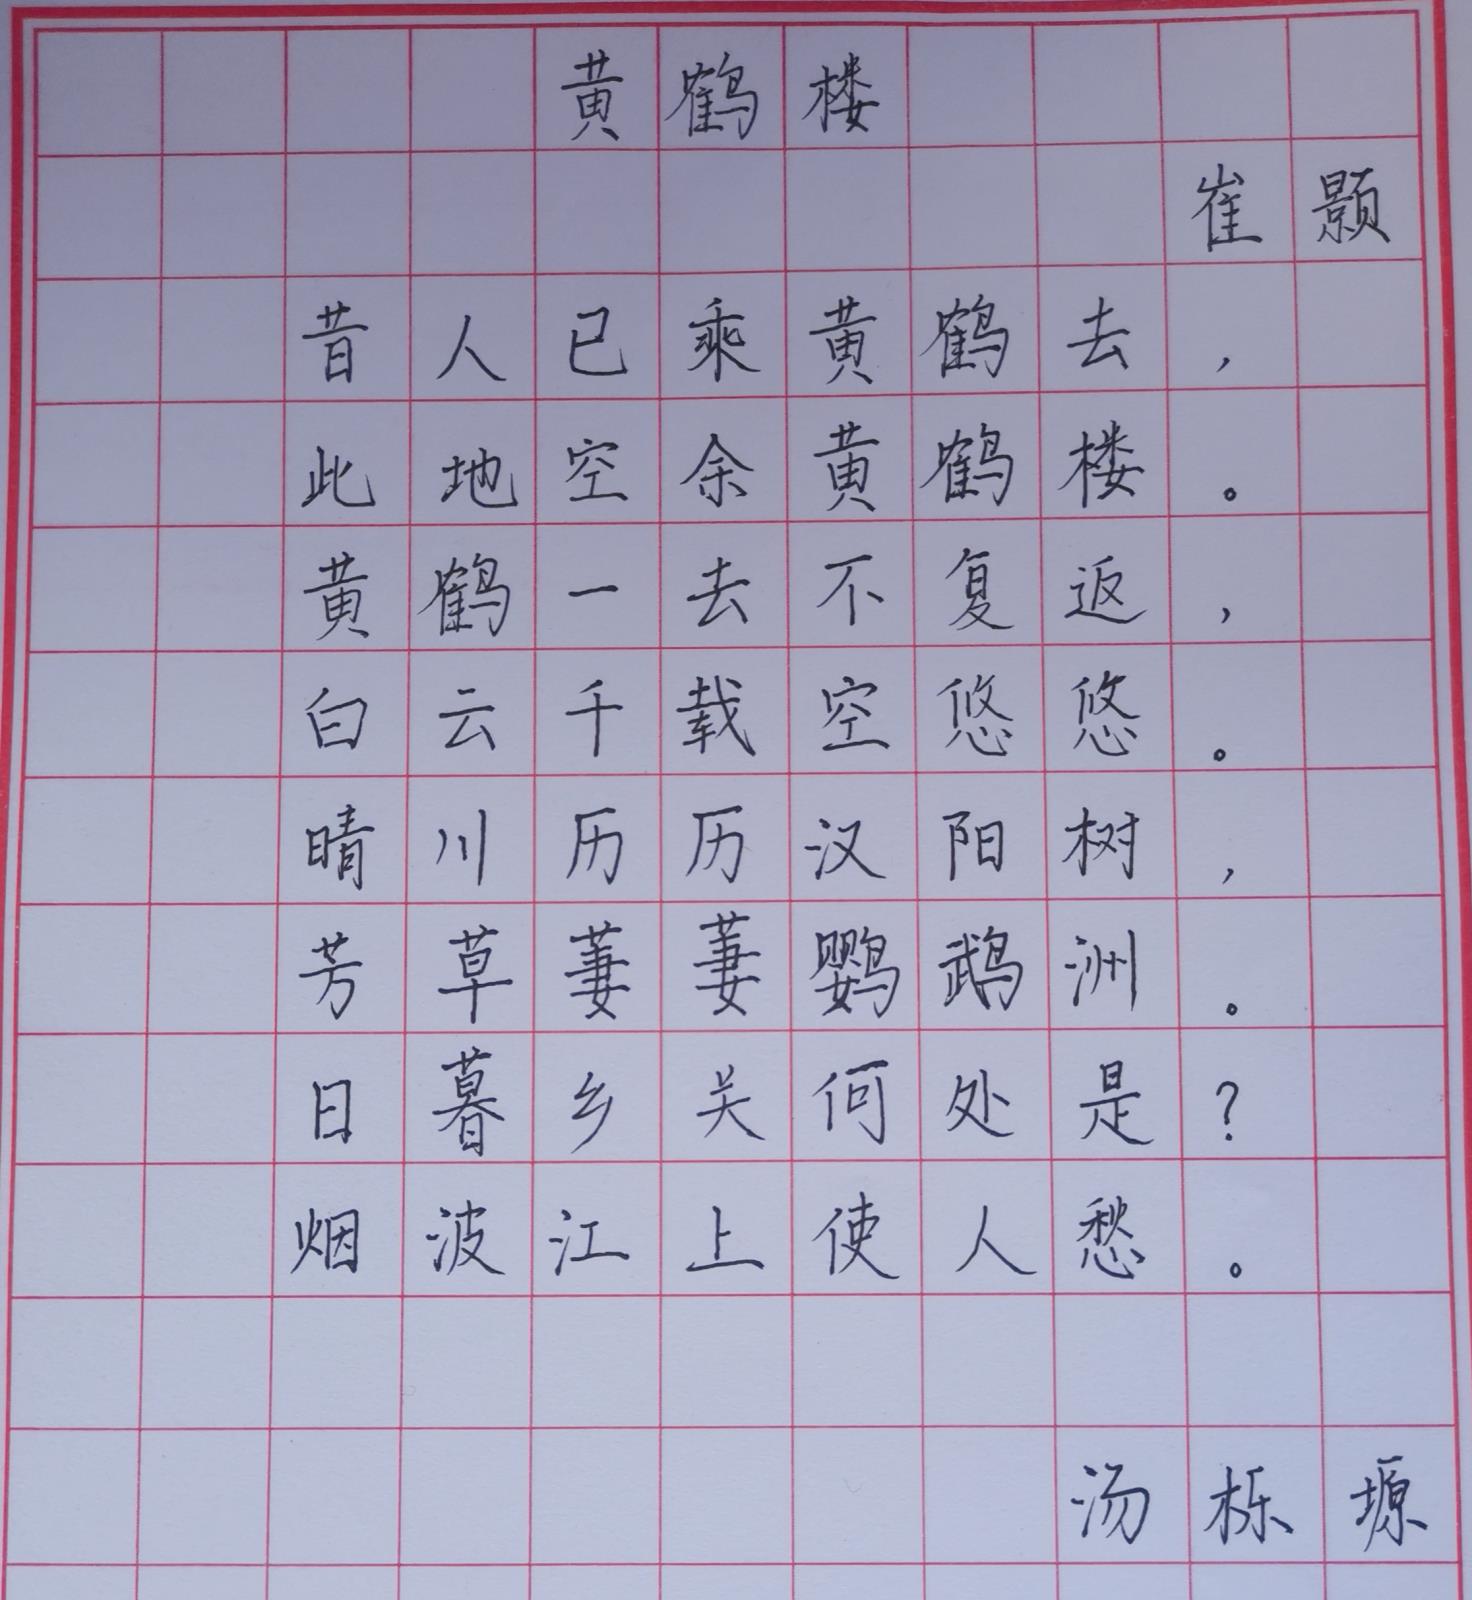 黄鹤楼
崔颢
昔人已乘黄鹤去，
此地空余黄鹤楼。
黄鹤一去不复返，
白云千载空悠悠。
晴川历历汉阳树，
芳草萋萋鹦鹉洲。
日暮乡关何处是？
烟波江上使人愁。
汤栎塬